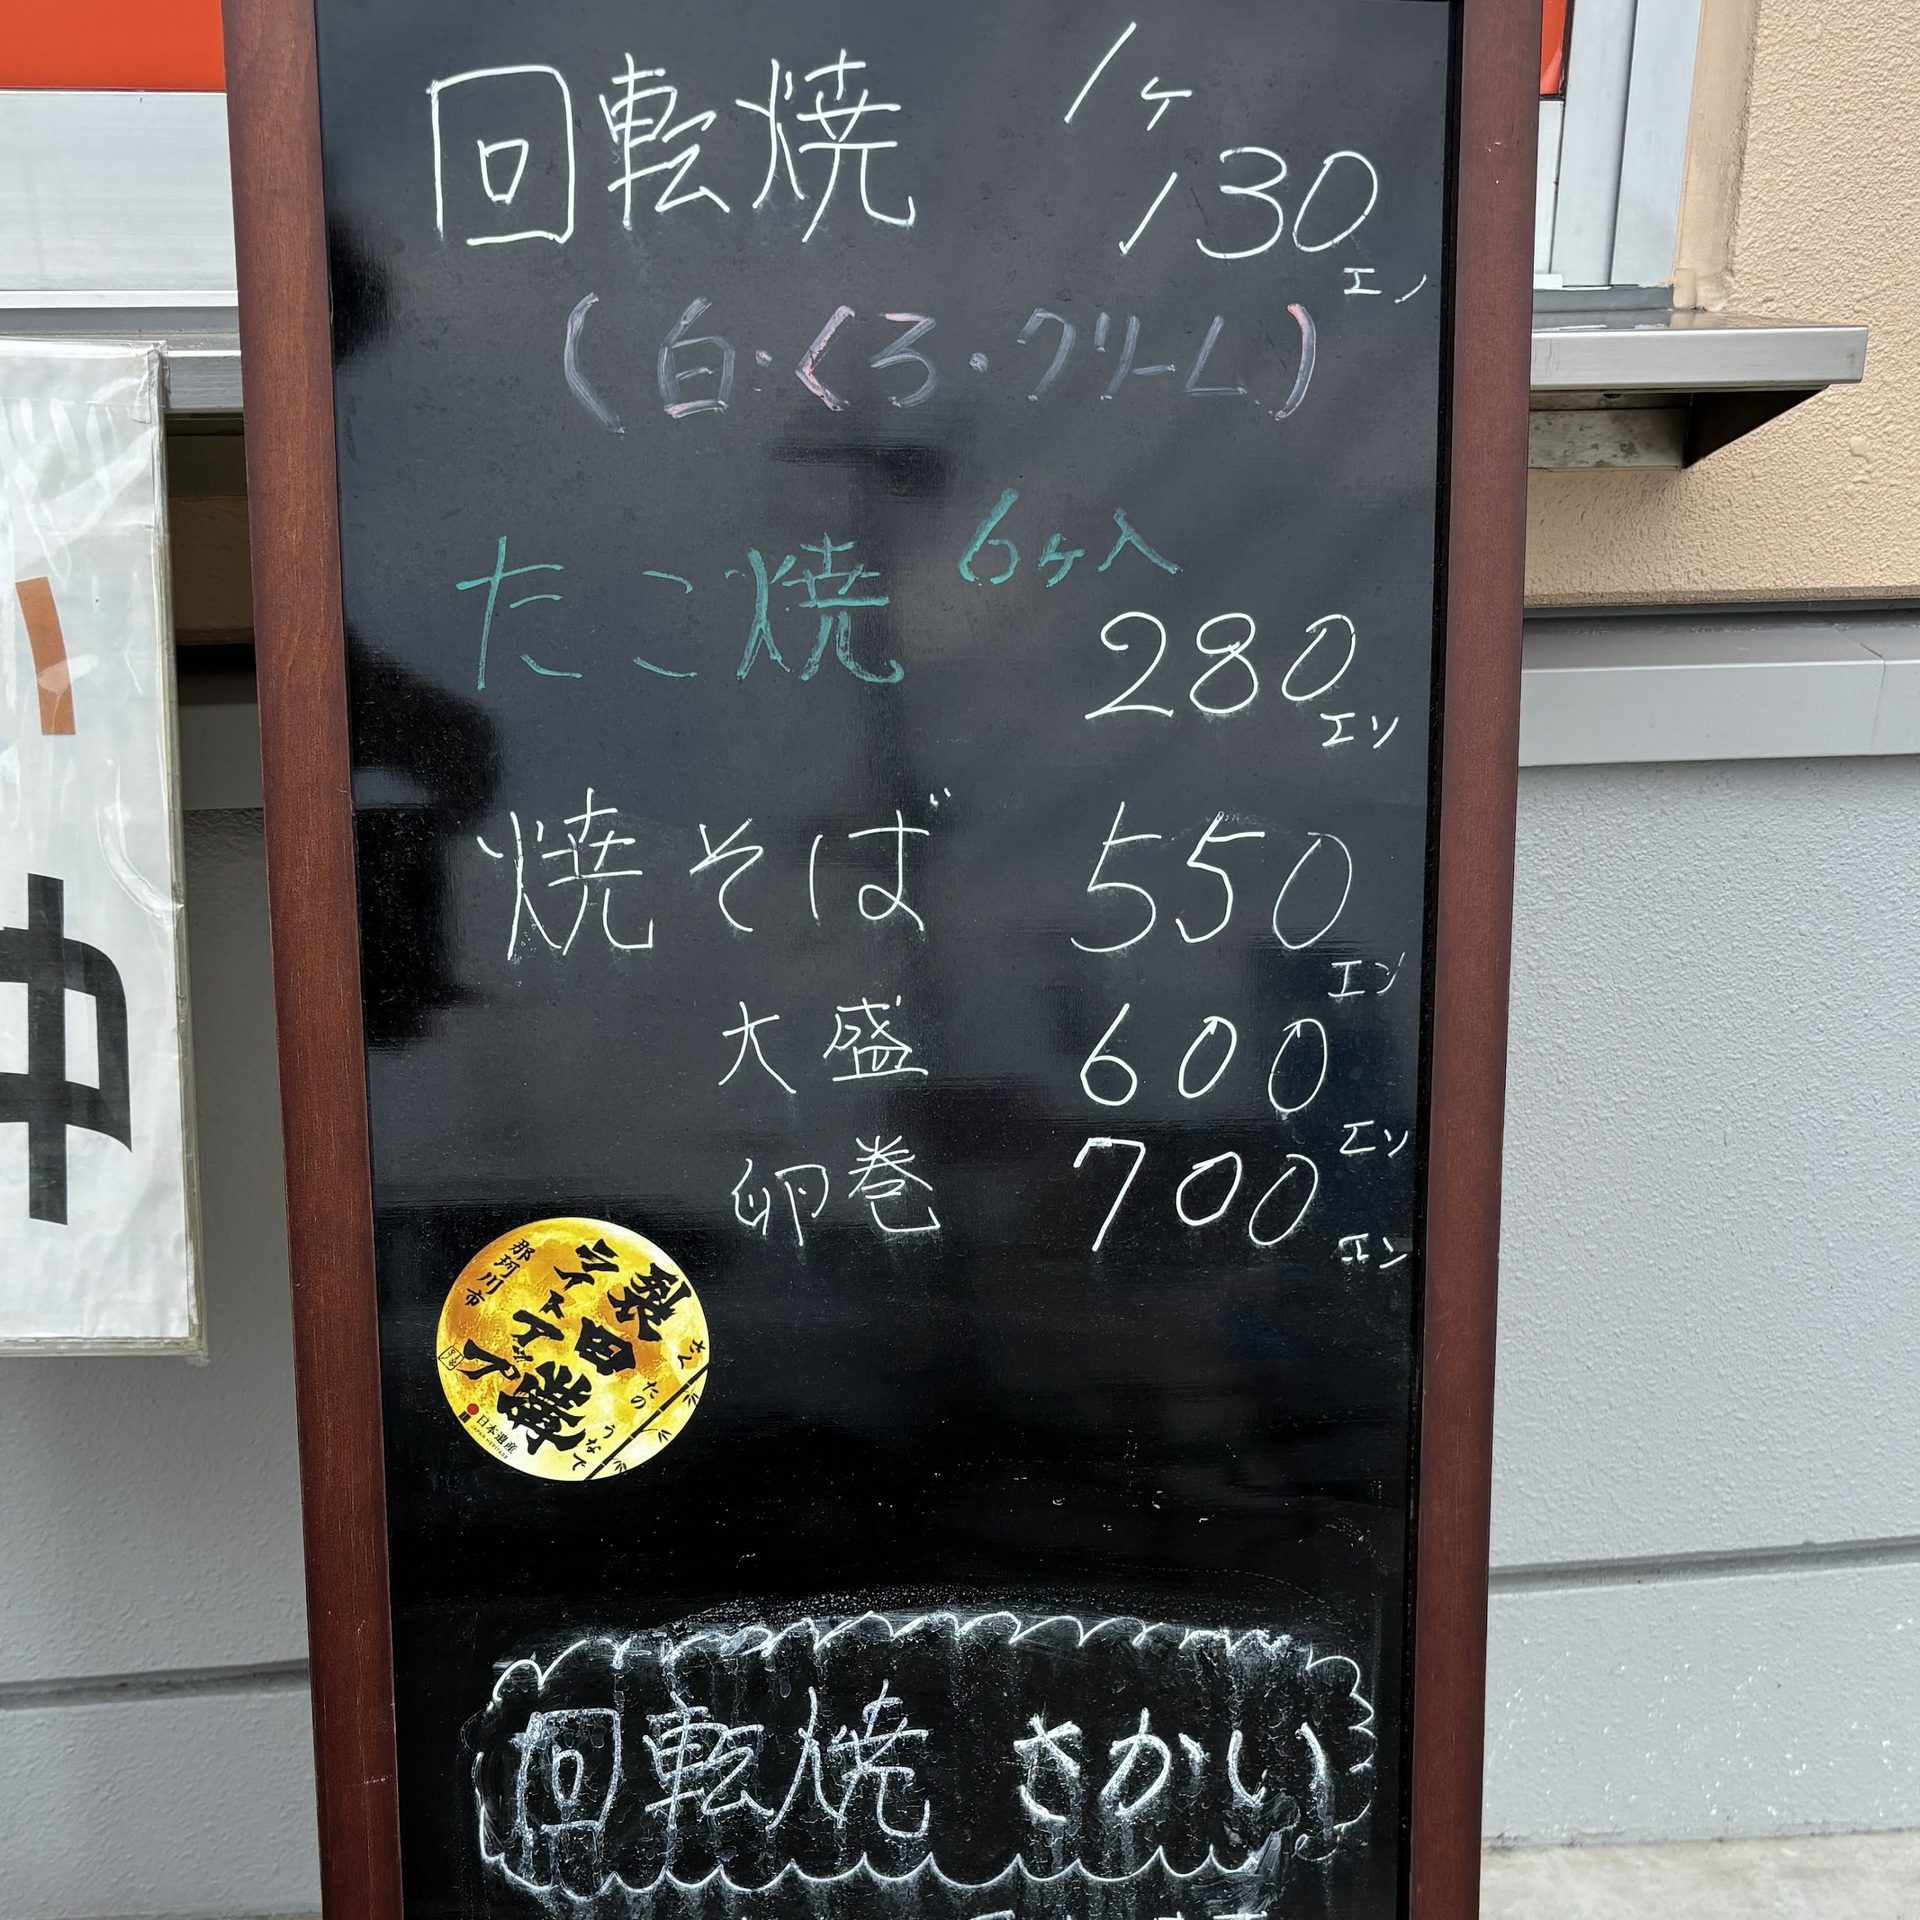 回転焼 1ヶ
130エン
(白・くろ・クリーム)
たこ焼 6ヶ入
280エン
焼そば 550エン
大盛 600エン
卵巻 700エン
裂田溝
さくたのうなで
ライトアップ
那珂川市
日本遺産
JAPAN HERITAGE
回転焼 さかい